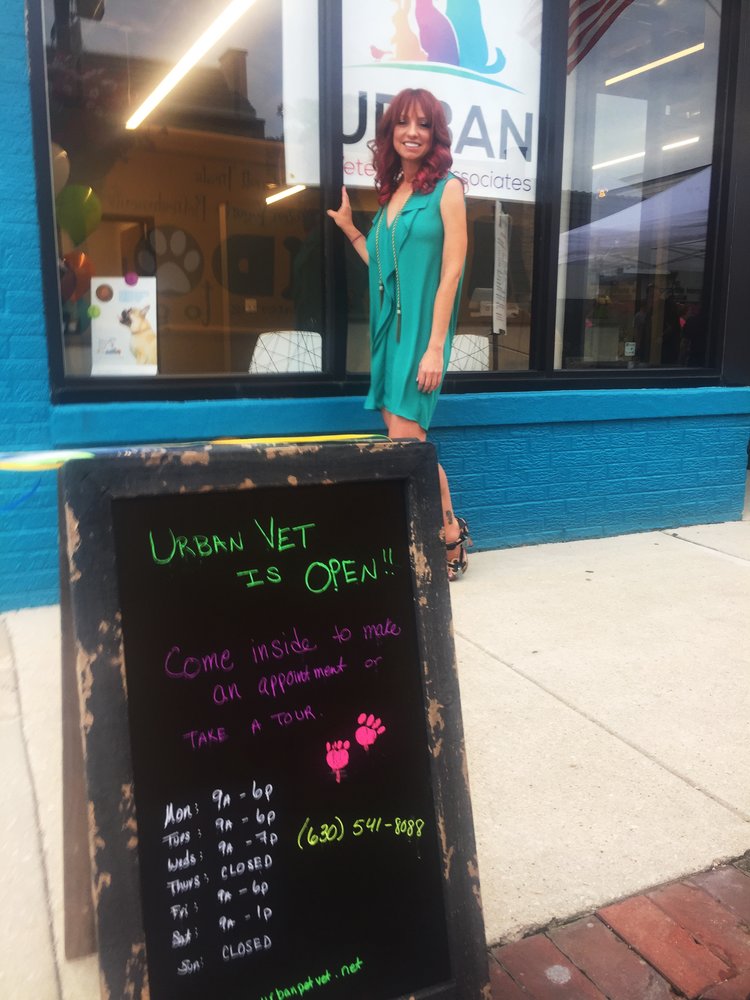 URBAN
Associates
URBAN VET
IS OPEN!!
Come inside to make
an appointment or
TAKE A TOUR.
Mon: 9A - 6p
Tues: 9A - 6p
Weds: 9A - 7p
Thurs: CLOSED
Fri: 9A - 6p
Sat: 9A - 1p
Sun: CLOSED
(630) 541-8088
urbanpetvet.net